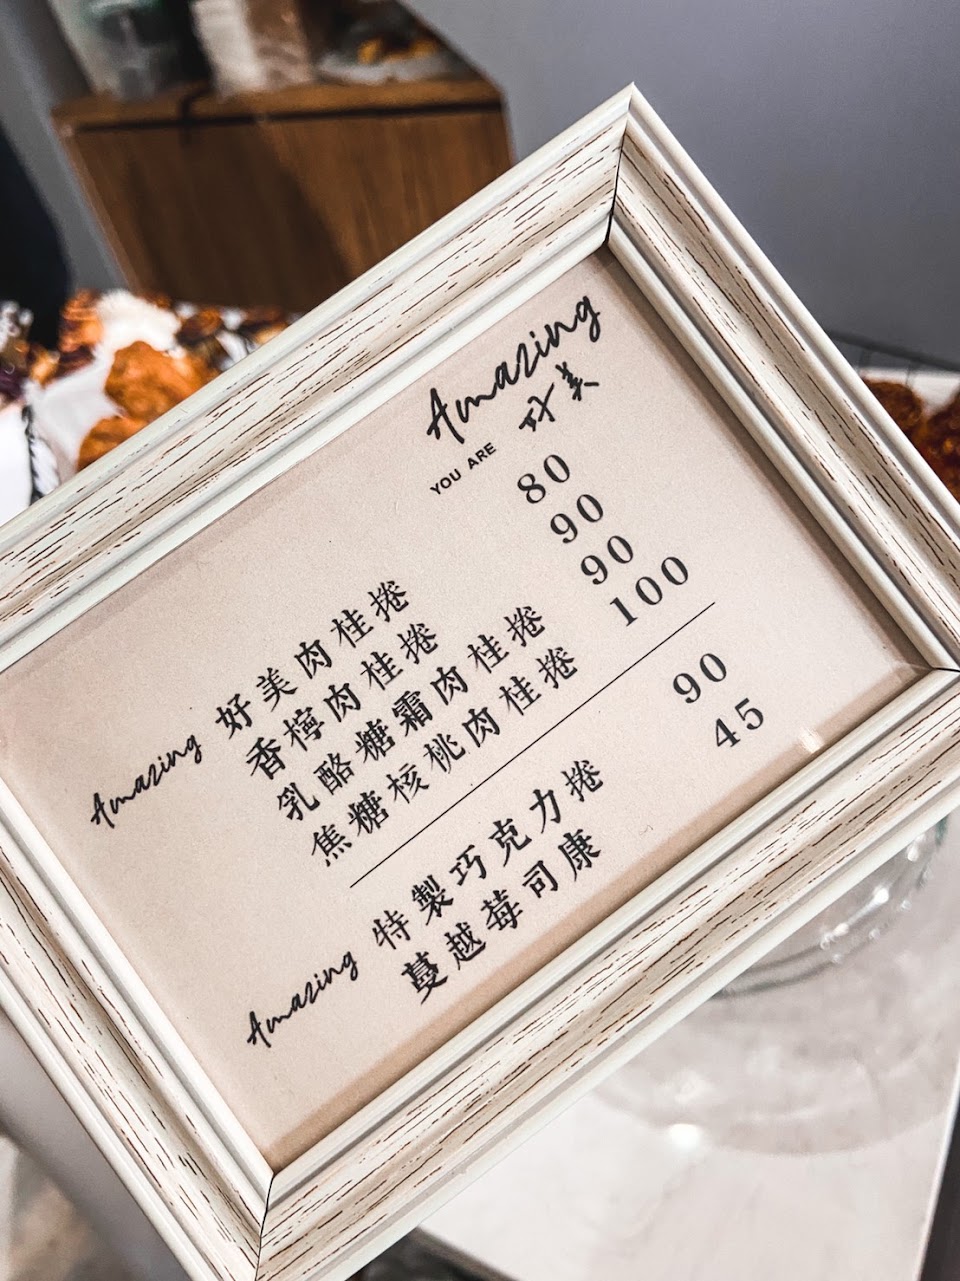 Amazing
YOU ARE 好美
Amazing 好美肉桂捲 80
香檸肉桂捲 90
乳酪糖霜肉桂捲 90
焦糖核桃肉桂捲 100
Amazing 特製巧克力捲 90
蔓越莓司康 45